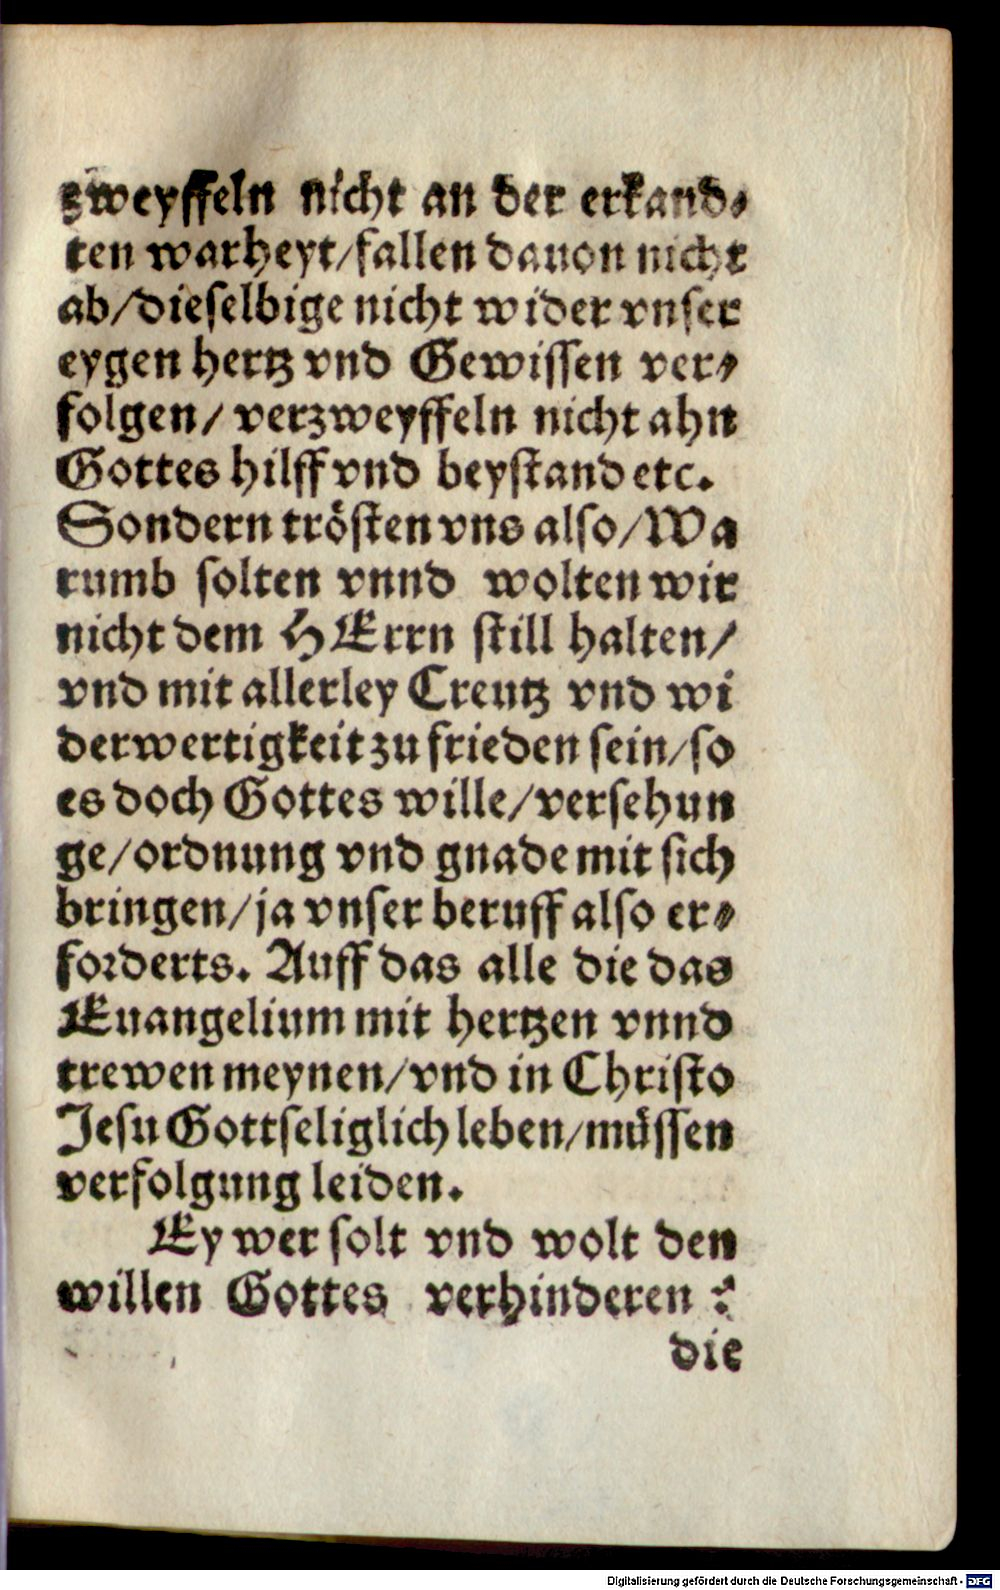 zweyffeln nicht an der erkand⸗
ten warheyt/fallen dauon nicht
ab/dieselbige nicht wider vnser
eygen hertz vnd Gewissen ver⸗
folgen/ verzweyffeln nicht ahn
Gottes hilff vnd beystand etc.
Sondern trösten vns also/Wa
rumb solten vnnd wolten wir
nicht dem HErrn still halten/
vnd mit allerley Creutz vnd wi
derwertigkeit zu frieden sein/so
es doch Gottes wille/versehun
ge/ordnung vnd gnade mit sich
bringen/ja vnser beruff also er⸗
forderts. Auff das alle die das
Euangelium mit hertzen vnnd
trewen meynen/vnd in Christo
Jesu Gottseliglich leben/müssen
verfolgung leiden.
Ey wer solt vnd wolt den
willen Gottes verhinderen ?
die
Digitalisierung gefördert durch die Deutsche Forschungsgemeinschaft - DFG